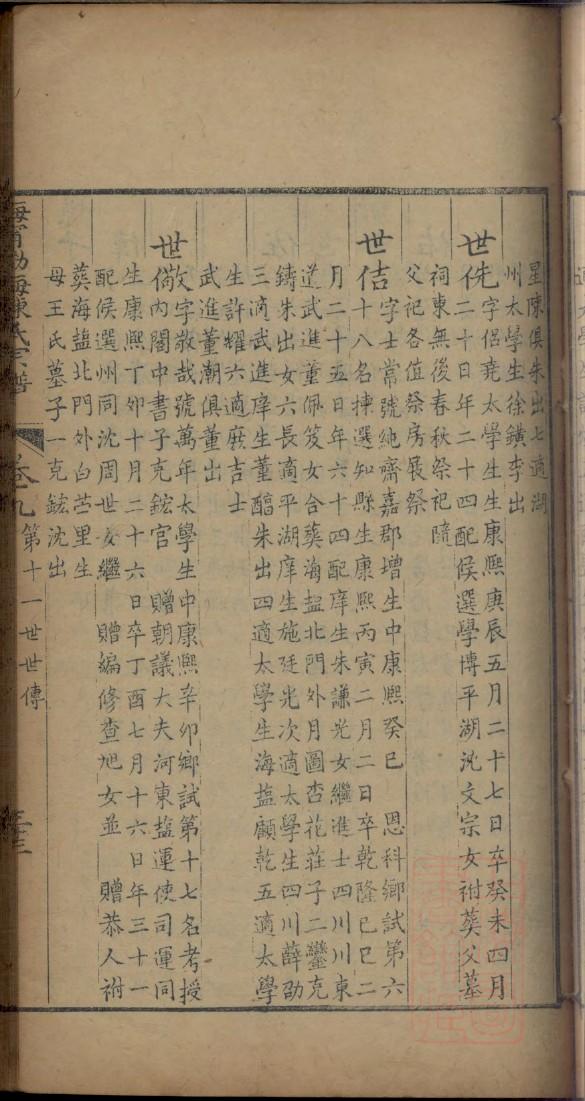 星陳俱朱出七適湖
州太學生徐鐄李出
世侁字侶堯太學生生康熙庚辰五月二十七日卒癸未四月
二十日年二十四配候選學博平湖沈文宗女祔葬父墓
祠東無後春秋祭祀隨
父祀各值祭房展祭
世佶字士常號純齋嘉郡增生中康熙癸巳 恩科鄉試第六
十八名揀選知縣生康熙丙寅二月二日卒乾隆己巳二
月二十五日年六十四配庠生朱謙光女繼進士四川川東
道武進董佩笈女合葬海盐北門外月圖杏花莊子二鑾克
鑄朱出女六長適平湖庠生施廷光次適太學生四川薛劭
三適武進庠生董醕朱出四適太學生海盐顧乾五適太學
生許耀六適庶吉士
武進董潮俱董出
世儆字敬哉號萬年太學生中康熙辛卯鄉試第十七名考授
內閣中書子克鋐官 贈朝議大夫河東盐運使司運同
生康熙丁卯十月二十六日卒丁酉七月十六日年三十一
配侯選州同沈周世女繼 贈編修查旭女並 贈恭人祔
葬海盐北門外白苎里生
母王氏墓子一克鋐沈出
海甯渤海陳氏宗譜 卷九 第十一世世傳